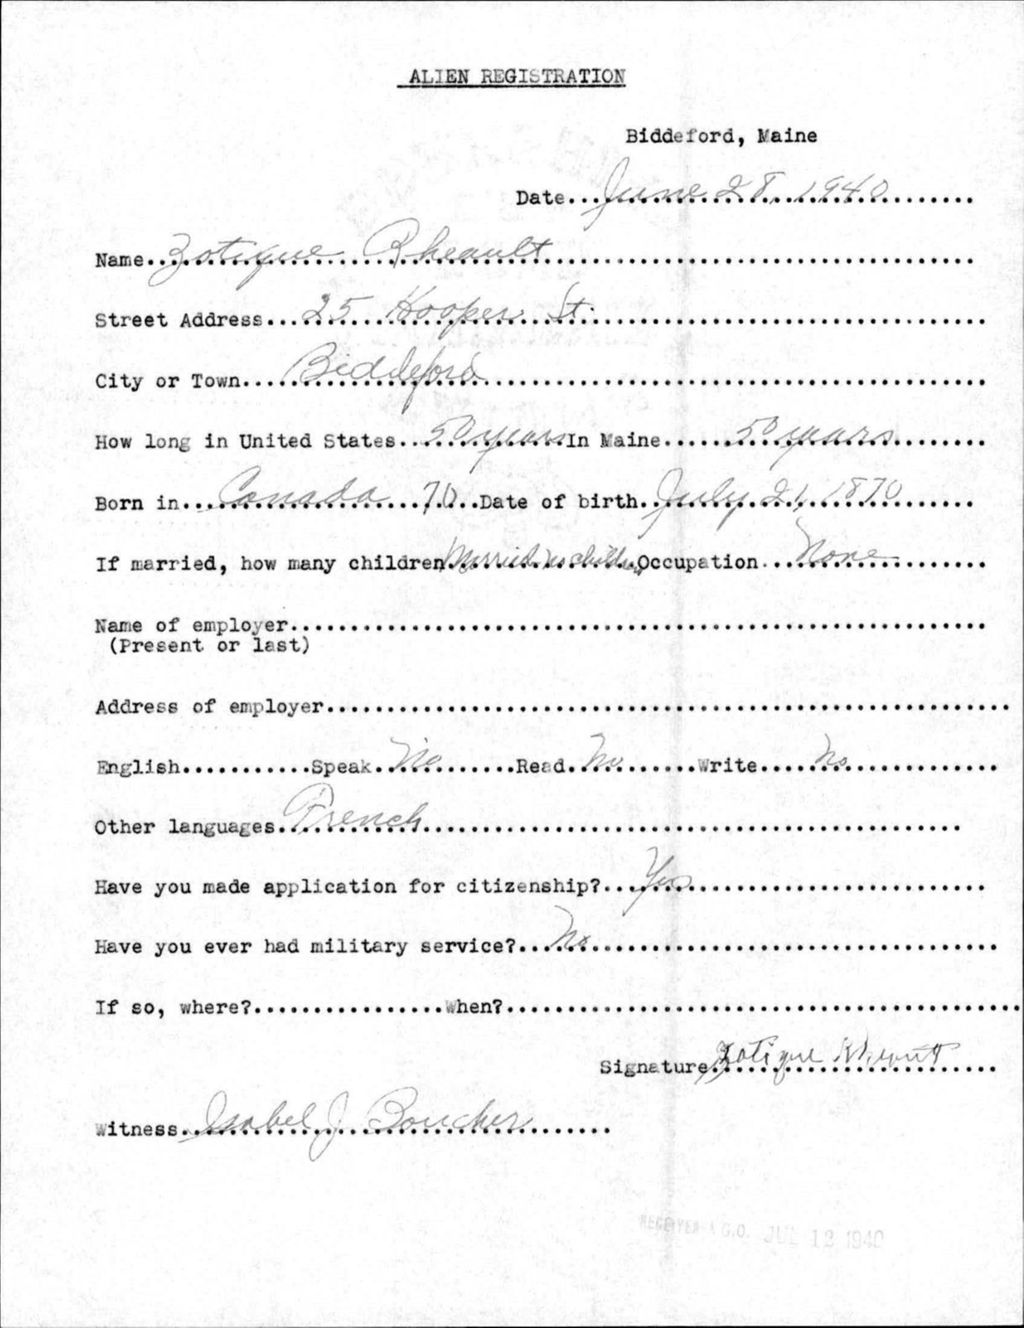 ALIEN REGISTRATION
Biddeford, Maine
Date...June 28, 1940...
Name...Zotique Rheault...
Street Address...25 Hooper St....
City or Town...Biddeford...
How long in United States...50 years In Maine...50 years...
Born in...Canada 70...Date of birth...July 21, 1870...
If married, how many children Married no child...Occupation...None...
Name of employer...
(Present or last)
Address of employer...
English...Speak...No...Read...No...Write...No...
Other languages...French...
Have you made application for citizenship?...Yes...
Have you ever had military service?...No...
If so, where?...When?...
Signature...Zotique Rheault...
Witness...Isabel J. Boucher...
RECEIVED A.G.O. JUL 12 1940